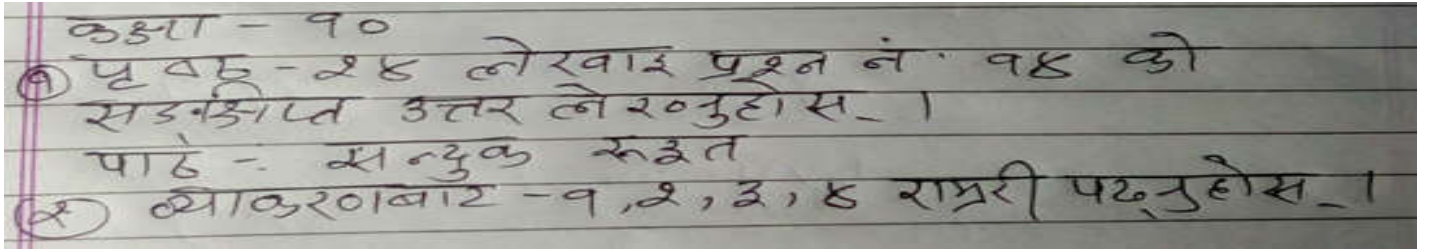 कक्षा - १०
① पृष्ठ - २४ लेखाइ प्रश्न नं. १४ को
सङक्षिप्त उत्तर लेख्नुहोस् ।
पाठ - सन्दुक रूइत
② व्याकरणबाट - १, २, ३, ४ राम्ररी पढ्नुहोस् ।